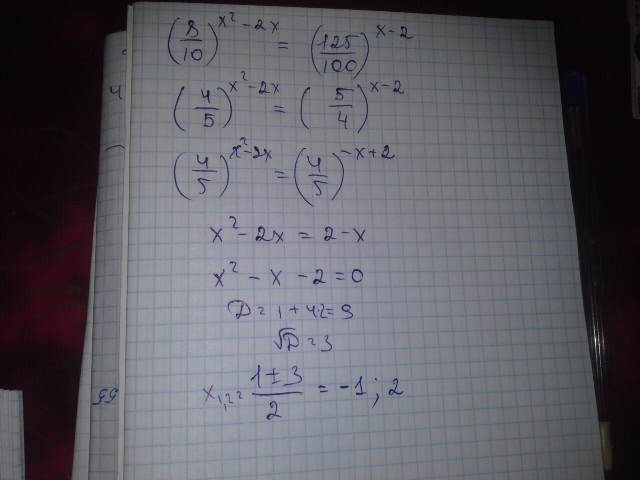 (8/10)^(x²-2x) = (125/100)^(x-2)
(4/5)^(x²-2x) = (5/4)^(x-2)
(4/5)^(x²-2x) = (4/5)^(-x+2)
x² - 2x = 2 - x
x² - x - 2 = 0
D = 1 + 4·2 = 9
√D = 3
x₁,₂ = (1±3)/2 = -1; 2